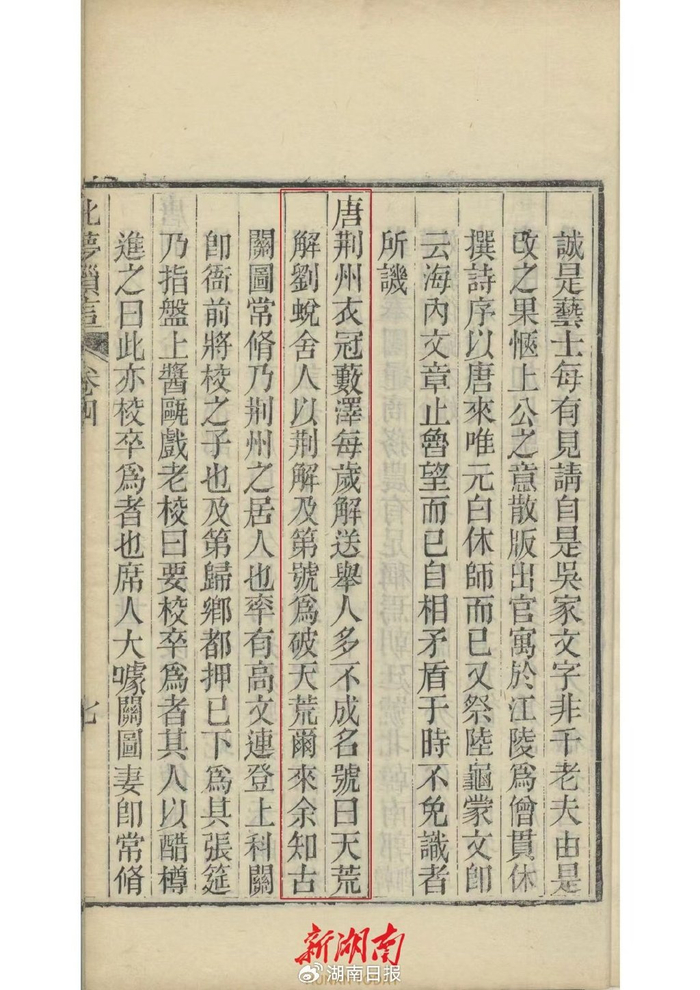 誠是藝士每有見請自是吳家文字非千老夫由是
改之果愜上公之意散版出官寓於江陵爲僧貫休
撰詩序以唐來唯元白休師而已又祭陸龜蒙文卽
云海內文章止魯望而已自相矛盾于時不免識者
所譏
唐荆州衣冠藪澤每歲解送舉人多不成名號曰天荒
解劉蛻舍人以荆解及第號爲破天荒爾來余知古
關圖常脩乃荆州之居人也率有高文連登上科關
卽衙前將校之子也及第歸鄉都押已下爲其張筵
乃指盤上醬甌戲老校曰要校卒爲者其人以醋樽
進之曰此亦校卒爲者也席人大噱關圖妻卽常脩
北夢瑣言 卷四
七
新湖南
湖南日报